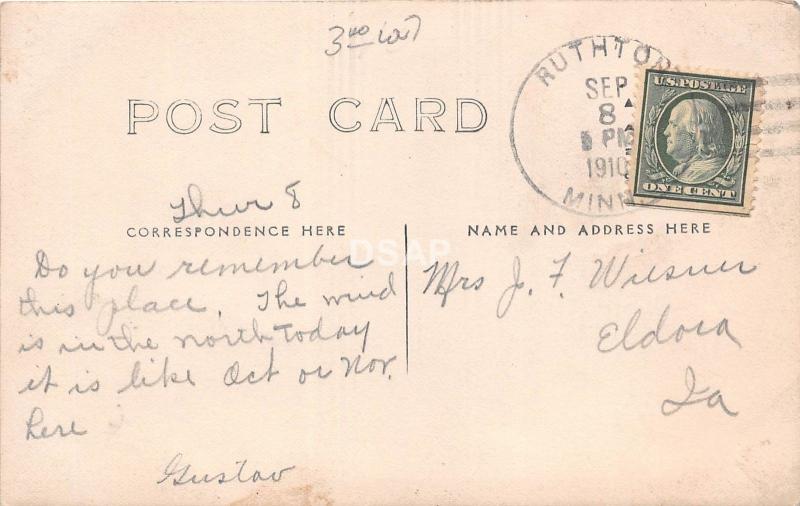 3rd lot
RUTHTON
SEP
8
PM
1910
MINN.
U.S. POSTAGE
ONE CENT
POST CARD
Thur 8
CORRESPONDENCE HERE
NAME AND ADDRESS HERE
DSAP
Do you remember
this place. The wind
is in the north Today
it is like Oct or Nov.
here
Gustav
Mrs J. F. Wiesner
Eldora
Ia